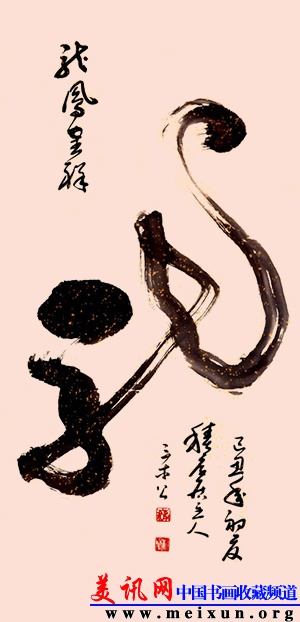 龙鳳呈祥
龙
己丑年初夏
居主人
三木公
美讯网
中国书画收藏频道
www.meixun.org